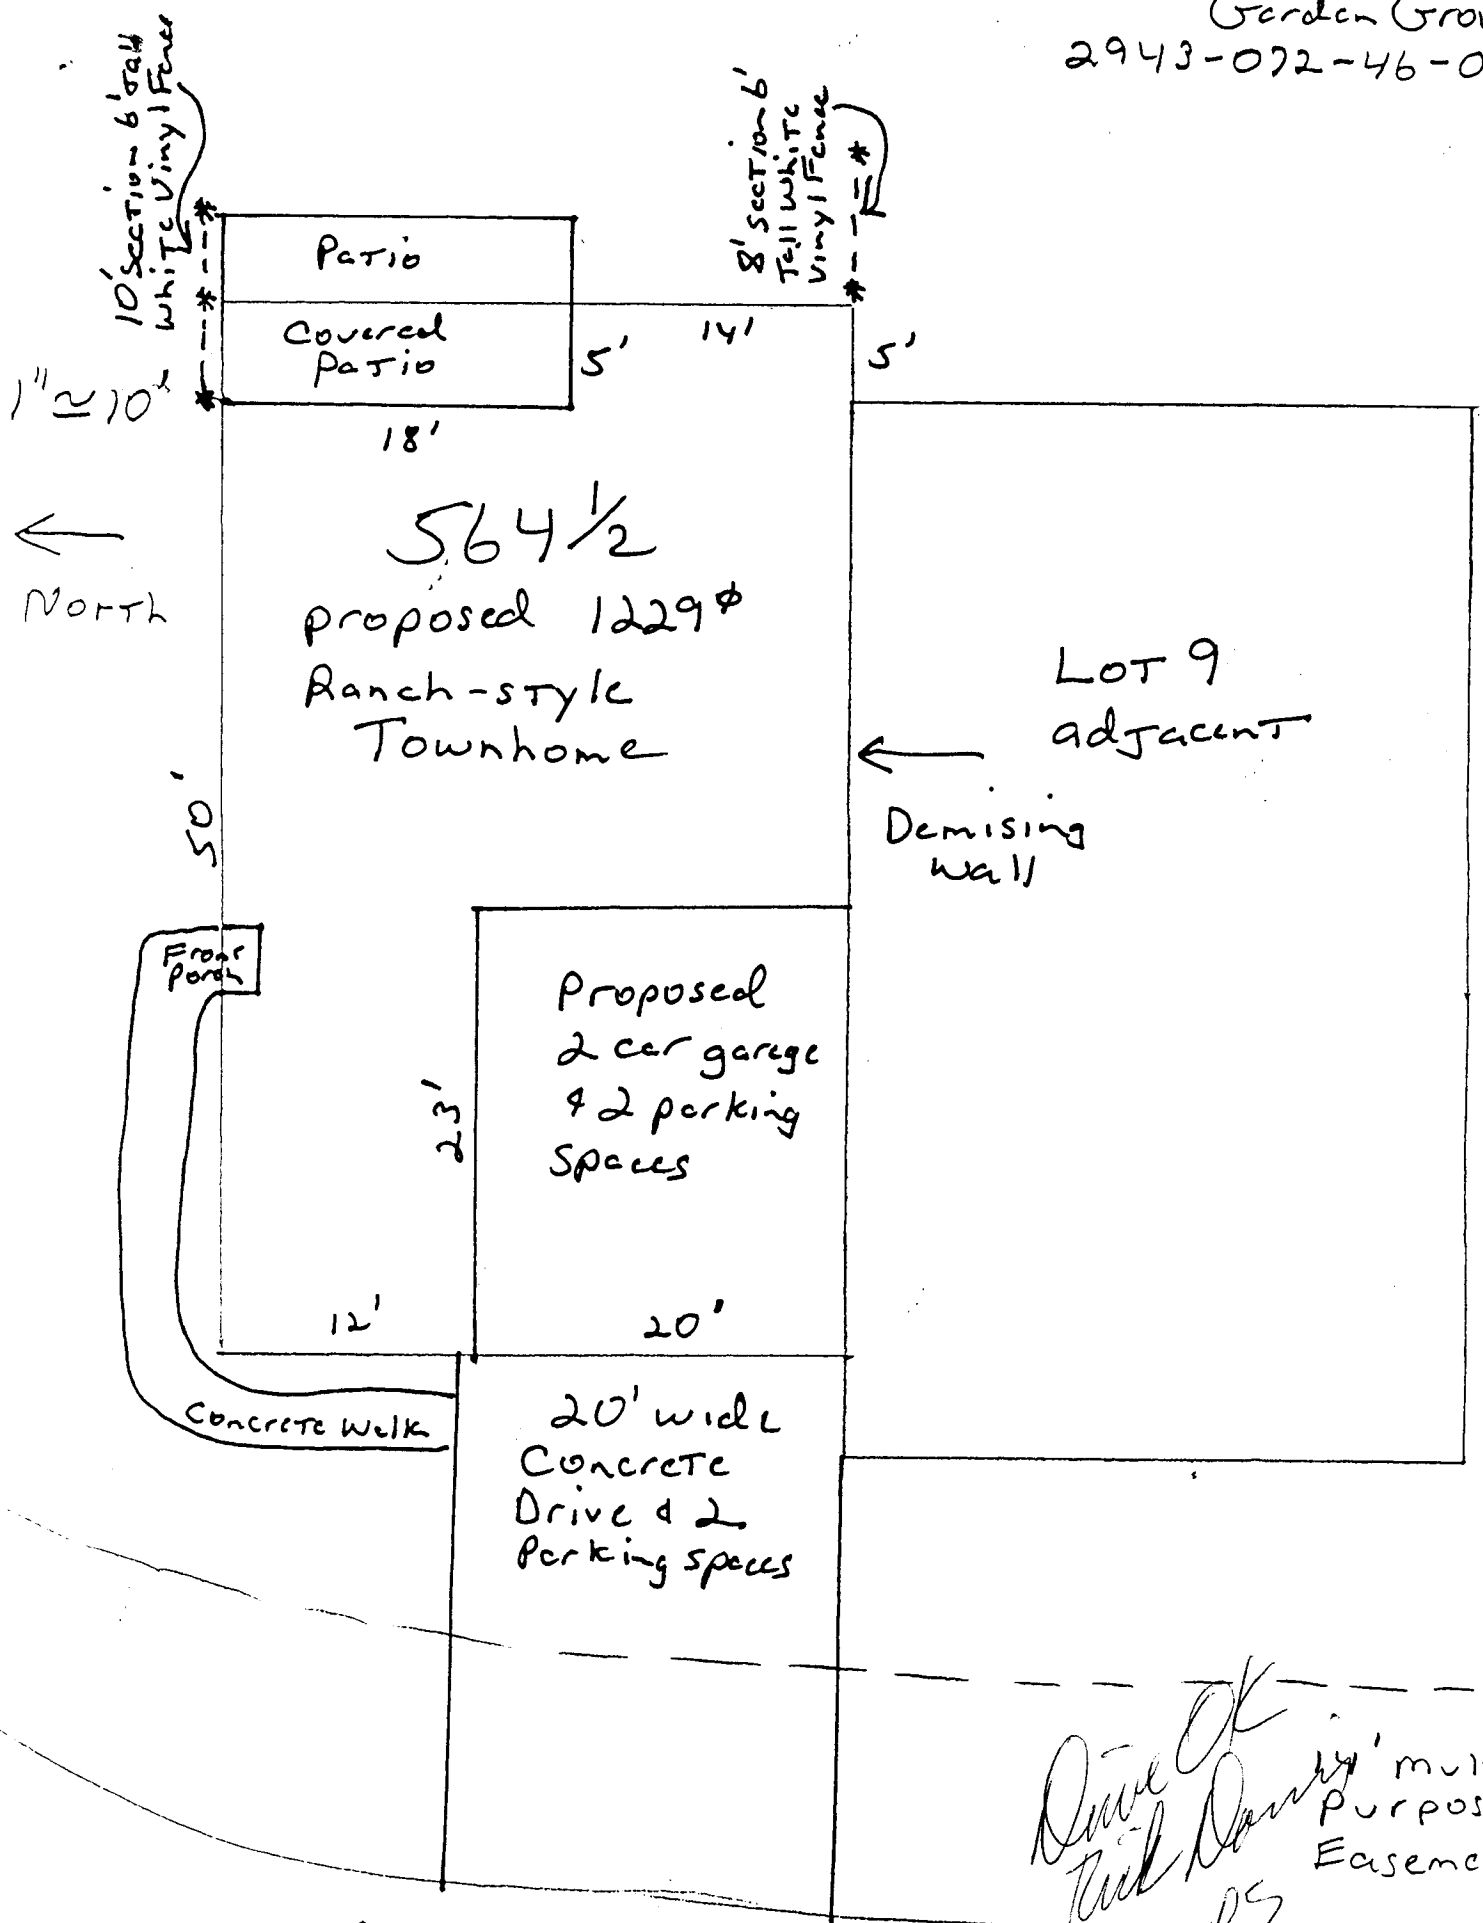 Garden Gro
2943-072-46-0
10' Section 6' Tall
White Vinyl Fence
8' Section 6'
Tall White
Vinyl Fence
Patio
Covered
Patio
5'
14'
5'
1" ≃ 10'
18'
North
564 1/2
proposed 1229 ⌀
Ranch-style
Townhome
Lot 9
adjacent
Demising
Wall
50'
Front
Porch
Proposed
2 car garage
& 2 parking
Spaces
23'
12'
20'
Concrete Walk
20' wide
Concrete
Drive & 2
Parking Spaces
Drive OK
14' mul
Purpos
Easeme